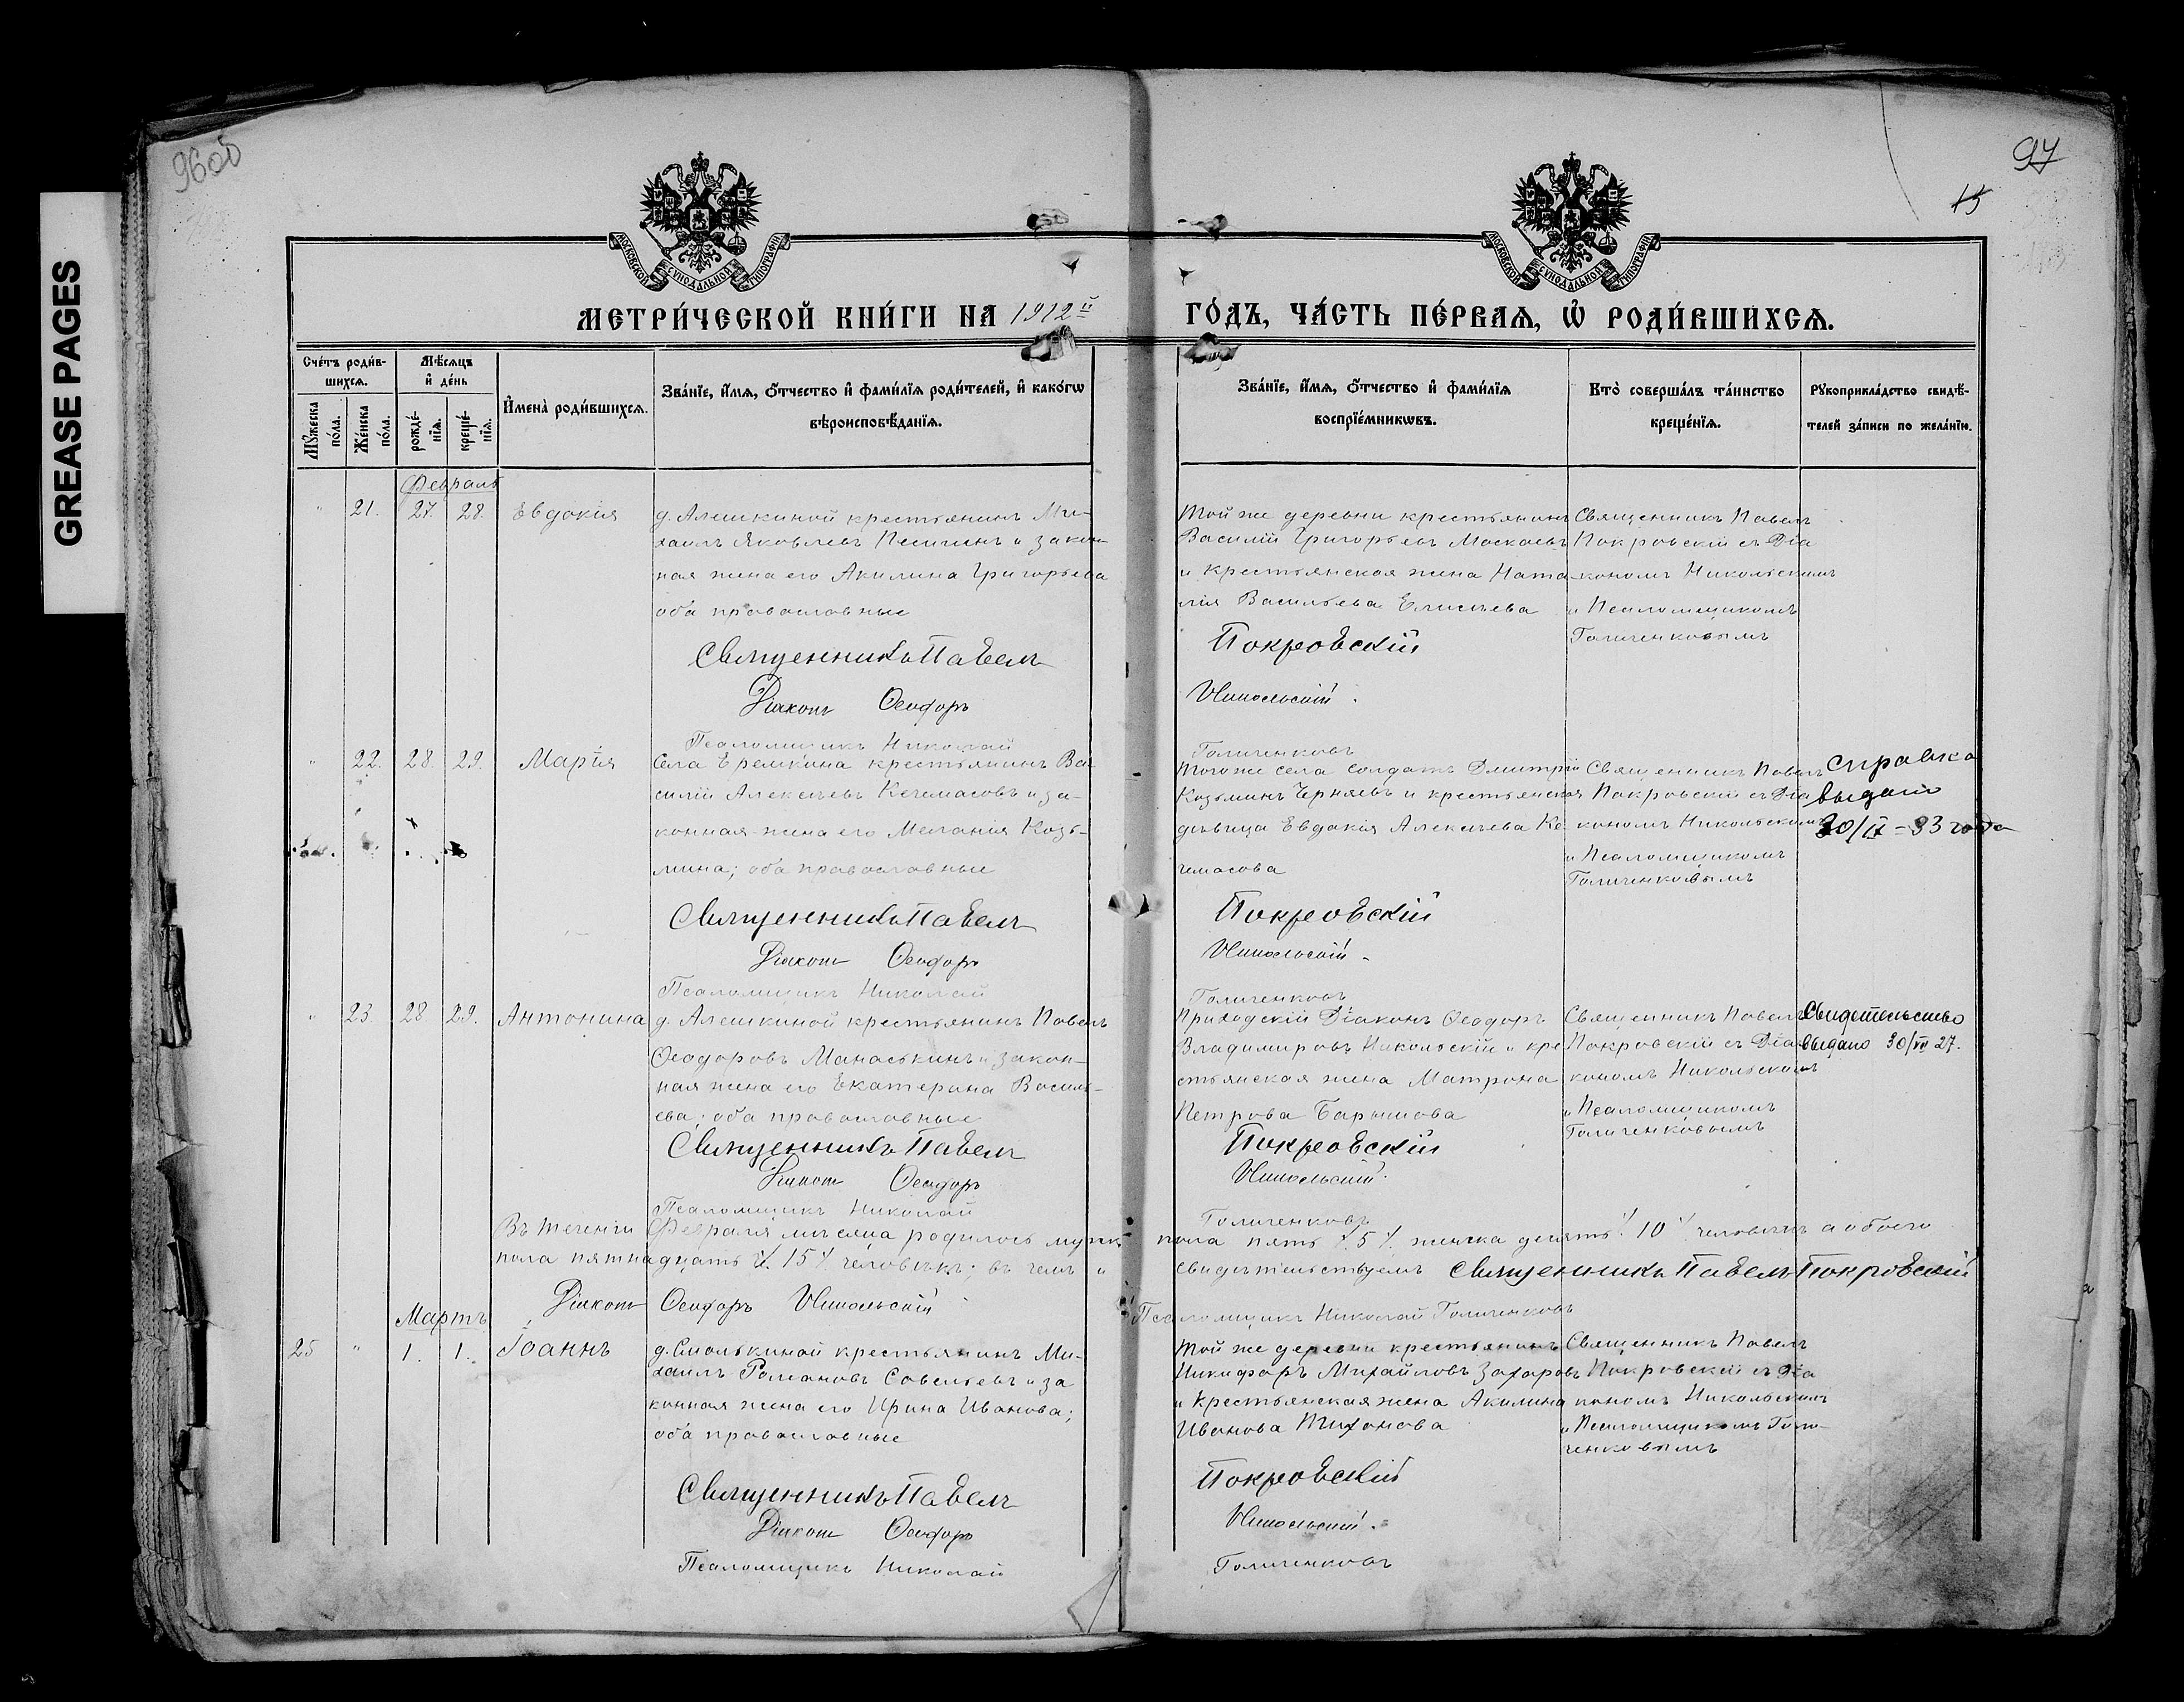 GREASE PAGES
96об
97
15
МОСКОВСКОЙ СѴНОДАЛЬНОЙ ТИПОГРАФІИ
МОСКОВСКОЙ СѴНОДАЛЬНОЙ ТИПОГРАФІИ
МЕТРИ́ЧЕСКОЙ КНИ́ГИ НА 1912й
ГО́ДЪ, ЧА́СТЬ ПЕ́РВАЯ, Ѡ РОДИ́ВШИХСЯ.
Сче́тъ роди́в-
шихся.
Мꙋ́жеска
по́ла.
Же́нска
по́ла.
Мѣ́сяцъ
и де́нь
рожде́-
нїя.
креще́-
нїя.
И҆мена̀ роди́вшихся.
Зва́нїе, и҆́мя, ѻ҆́тчество и҆ фами́лїя роди́телей, и҆ како́гѡ
вѣроисповѣ́данїя.
Зва́нїе, и҆́мя, ѻ҆́тчество и҆ фами́лїя
воспрїе́мникѡвъ.
Кто̀ соверша́лъ та́инство
креще́нїя.
Рꙋкоприкла́дство свидѣ́-
телей за́писи по жела́нїю.
Февраль
" 21. 27. 28. Евдокія
д. Алешкиной крестьянинъ Ми-
хаилъ Яковлевъ и закон-
ная жена его Акилина Григорьева
оба православные
Священникъ Павелъ
Діаконъ Ѳеодоръ
Псаломщикъ Николай
Той же деревни крестьянинъ
Василій Григорьевъ Москаевъ
и крестьянская жена Ната-
лія Васильева Елисѣева
Покровскій
Никольскій.
Голиченковъ
Священникъ Павелъ
Покровскій съ Діа
кономъ Никольскимъ
и Псаломщикомъ
Голиченковымъ
" 22. 28. 29. Марія
Села Еремкина крестьянинъ Ва-
силій Алексѣевъ Кечемасовъ и за-
конная жена его Меланія Козь-
мина; оба православные
Священникъ Павелъ
Діаконъ Ѳеодоръ
Псаломщикъ Николай
Того же села солдатъ Дмитрій
Козьминъ Черняевъ и крестьянская
дѣвица Евдокія Алексѣева Ке
чемасова
Покровскій
Никольскій.
Голиченковъ
Священникъ Павелъ
Покровскій съ Діа
кономъ Никольскимъ
и Псаломщикомъ
Голиченковымъ
справка
выдано
20/IX-33 года
" 23 28 29. Антонина
д. Алешкиной крестьянинъ Павелъ
Ѳеодоровъ Манаськинъ и закон-
ная жена его Екатерина Василь-
ева; оба православные
Священникъ Павелъ
Діаконъ Ѳеодоръ
Псаломщикъ Николай
Приходскій Діаконъ Ѳеодоръ
Владимировъ Никольскій и кре
стьянская жена Матрона
Петрова Барышова
Покровскій
Никольскій.
Голиченковъ
Священникъ Павелъ
Покровскій съ Діа
кономъ Никольскимъ
и Псаломщикомъ
Голиченковымъ
Свидетельство
выдано 30/VII 27.
Въ теченіи Февраля мѣсяца родилось мужк. пола пять ٪ 5 ٪ женска десять ٪ 10 ٪ человѣкъ а обоего
пола пятнадцать ٪ 15 ٪ человѣкъ; въ чемъ и свидѣтельствуемъ Священникъ Павелъ Покровскій
Діаконъ Ѳеодоръ Никольскій
Псаломщикъ Николай Голиченковъ
Мартъ
25 " 1. 1. Іоаннъ
д. Смолькиной крестьянинъ Ми-
хаилъ Романовъ Савельевъ и за
конная жена его Ирина Иванова;
оба православные
Священникъ Павелъ
Діаконъ Ѳеодоръ
Псаломщикъ Николай
Той же деревни крестьянинъ
Никифоръ Михайловъ Захаровъ
и крестьянская жена Акилина
Иванова Тихонова
Покровскій
Никольскій.
Голиченковъ
Священникъ Павелъ
Покровскій съ Діа
кономъ Никольскимъ
и Псаломщикомъ Голи-
ченковымъ